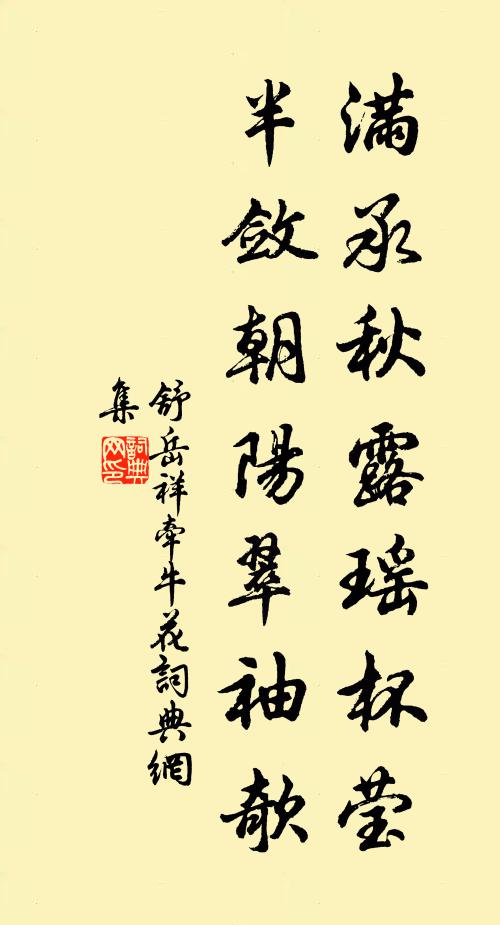 滿承秋露瑶杯莹
半斂朝陽翠袖欹
舒岳祥牽牛花詞典網
集
詞典
网印